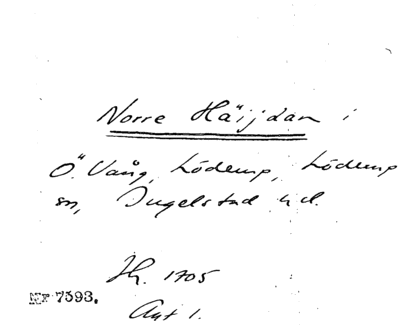 Norre Häijdan i
Ö. Vång, Löderup, Löderup
sn, Ingelstad hd.
Jh. 1705
Nr 7593.
Akt 1.